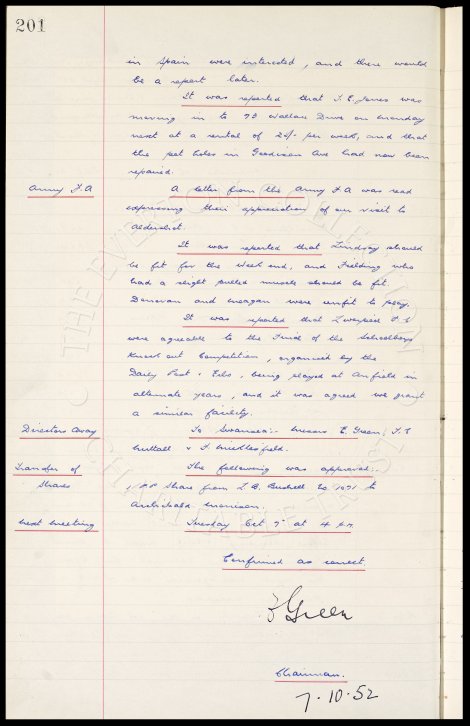 201
in Spain were interested, and there would
be a report later.
It was reported that T.E. Jones was
moving in to 73 Wallace Drive on Monday
next at a rental of 24/- per week, and that
the pot holes in Goodison Ave had now been
repaired.
Army F.A
A letter from the Army F.A was read
expressing their appreciation of our visit to
Aldershot.
It was reported that Lindsay should
be fit for the week end, and Fielding who
had a slight pulled muscle should be fit.
Donovan and Meagan were unfit to play.
It was reported that Liverpool F.C
were agreeable to the Final of the Schoolboys
Knock out Competition, organised by the
Daily Post & Echo, being played at Anfield in
alternate years, and it was agreed we grant
a similar facility.
Directors Away
To Swansea:- Messrs E. Green, T.C
Nuttall & F. Micklesfield.
Transfer of
Shares
The following was approved:-
1 Share from L.B. Bushell No 1071 to
Archibald Morrison.
Next Meeting
Tuesday Oct 7th at 4 p.m.
Confirmed as correct.
E Green
Chairman.
7.10.52
THE EVERTON COLLECTION
CHARITABLE TRUST